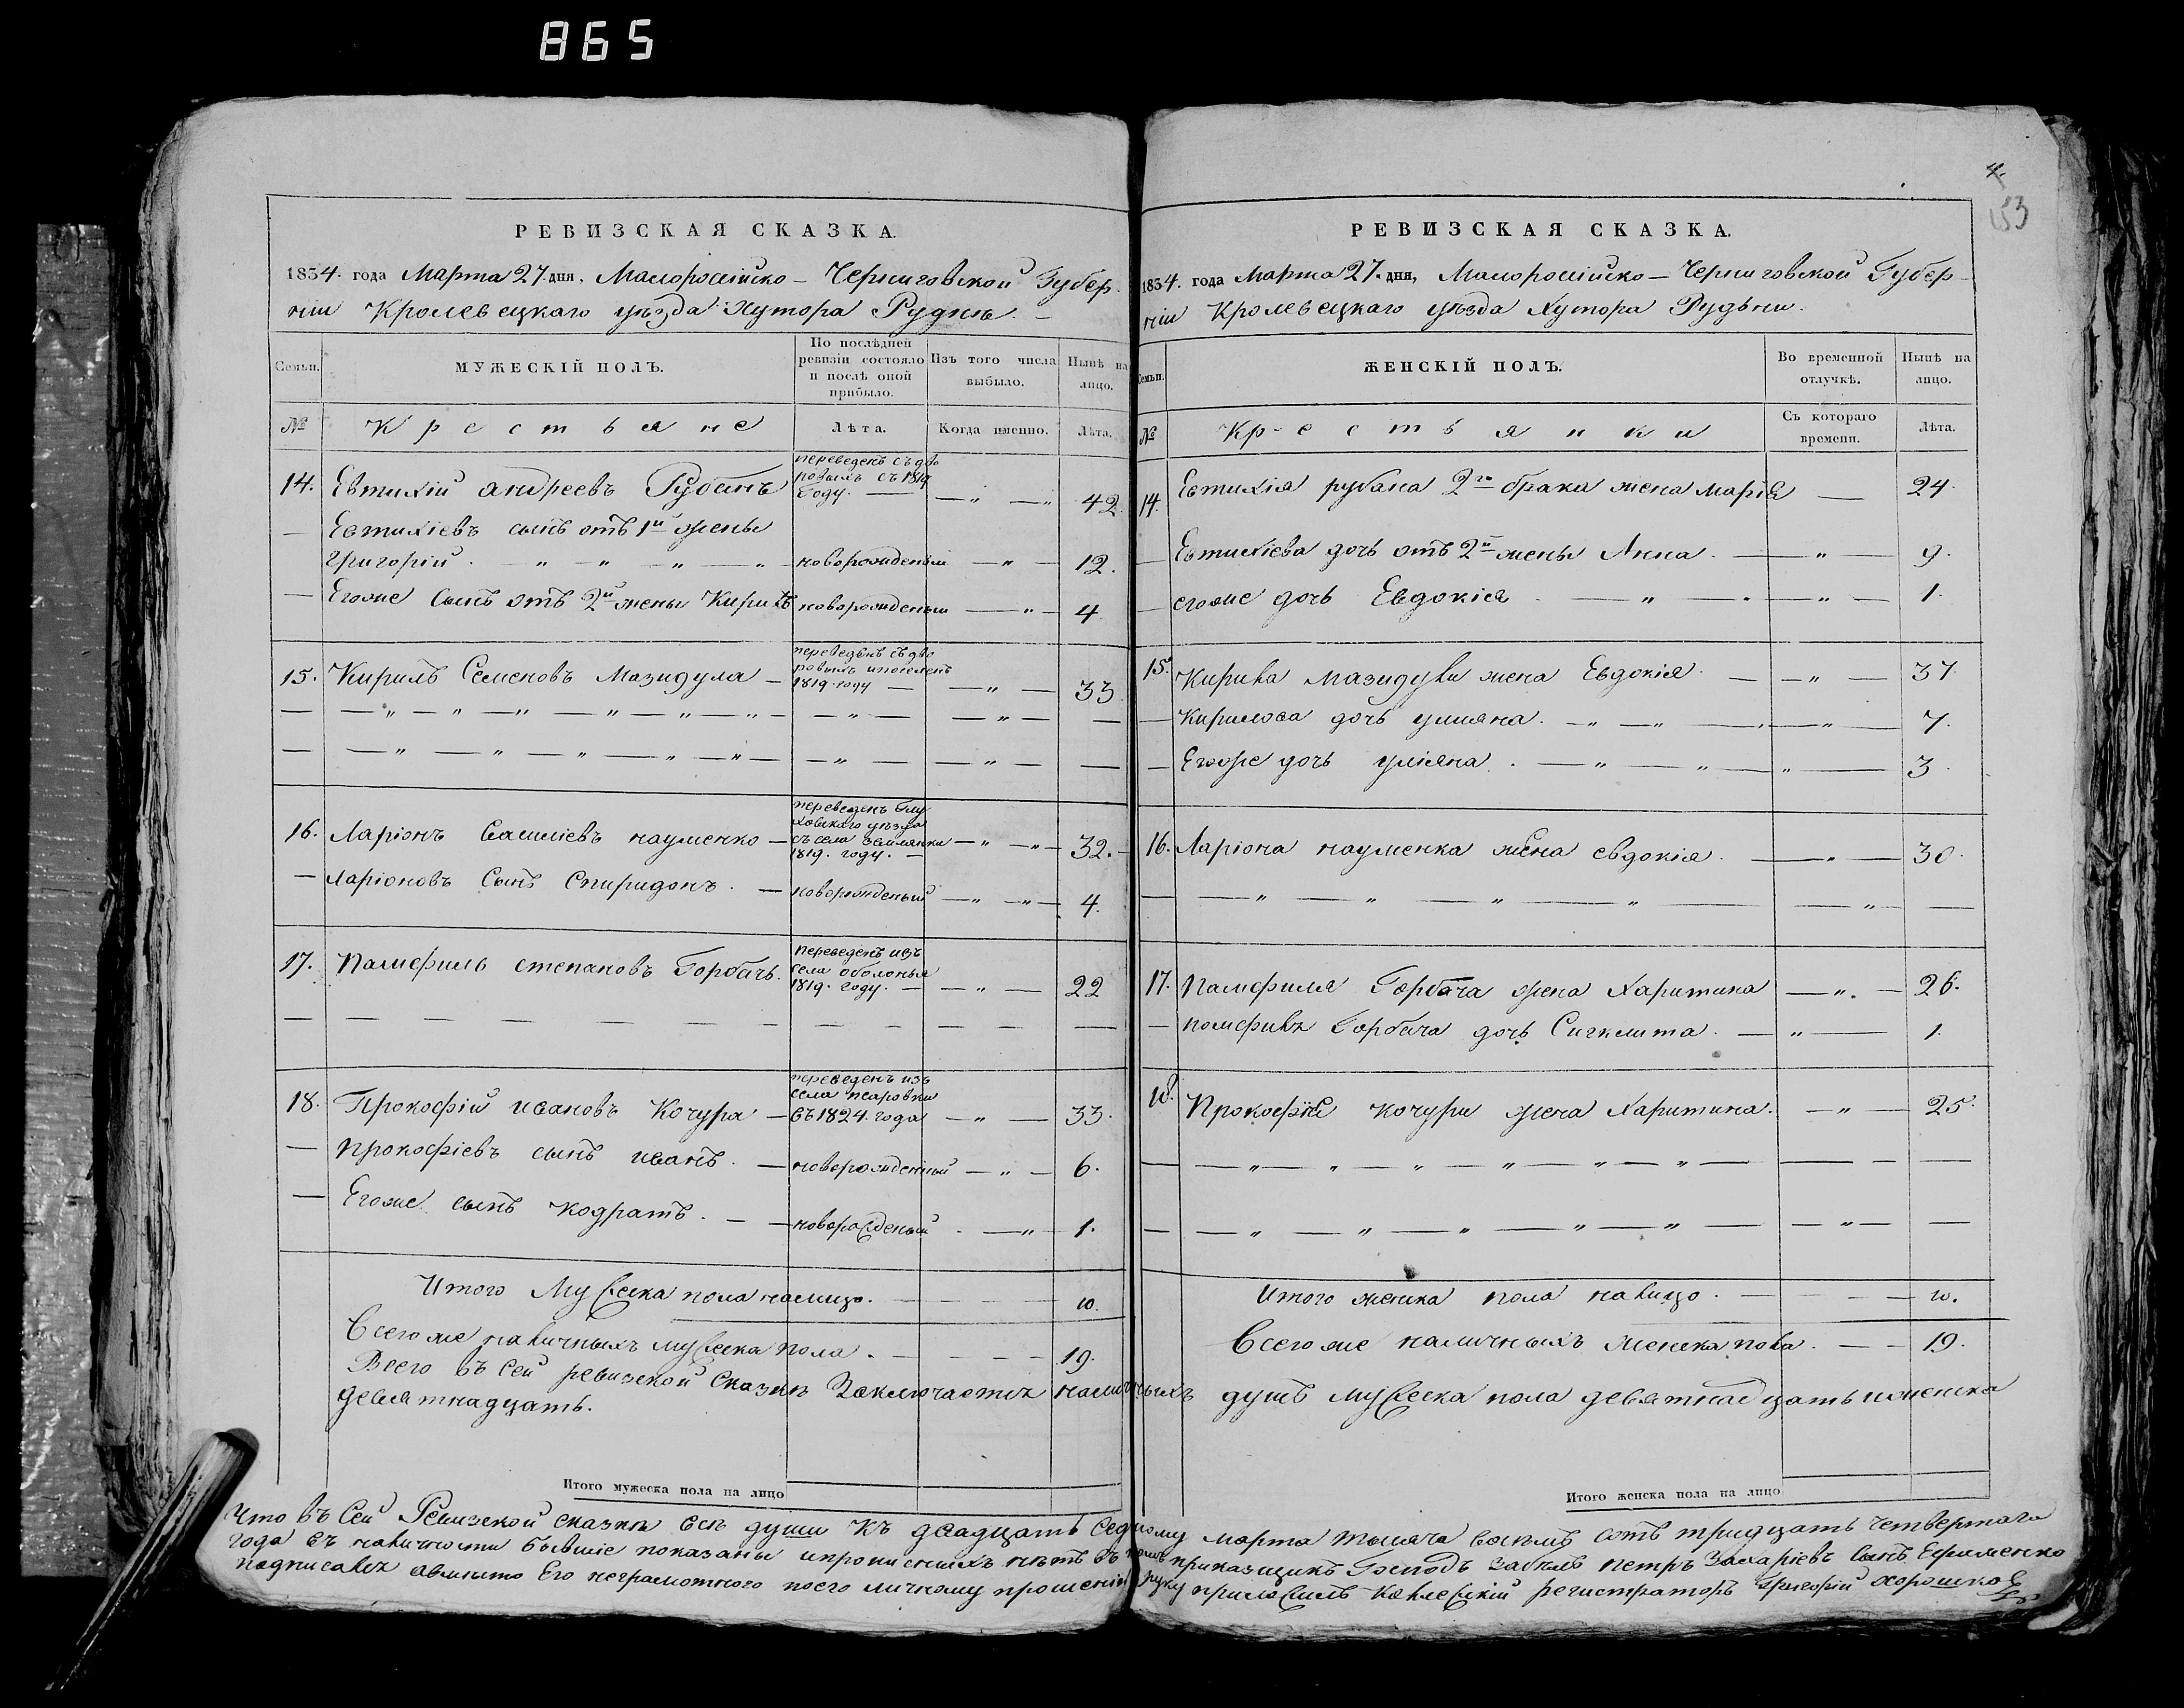 865
РЕВИЗСКАЯ СКАЗКА.
1834. года Марта 27. дня, Малороссійско – Черниговской Губер-
ніи Кролевецкаго уѣзда Хутора Руднѣ. –
Семьи.
МУЖЕСКІЙ ПОЛЪ.
По послѣдней ревизіи состояло и послѣ оной прибыло.
Изъ того числа выбыло.
Нынѣ на лицо.
№
Крестьяне
Лѣта.
Когда именно.
Лѣта.
14. Евтихій андреевъ Рубанъ переведенъ съ дво
ровыхъ съ 1819
году. — — „ — „ 42.
— Евтихіевъ сынъ отъ 1й жены
григорій. — „ — „ — „ — „ — новорожденый — „ — 12.
— Егоже сынъ отъ 2й жены Кирилъ новорожденый — „ — 4
15. Кирилъ Семеновъ Мазидула — переведенъ съ дво
ровыхъ
1819. году — — „ — 33.
16. Ларіонъ Василіевъ науменко — переведенъ Глу
ховскаго уѣзда
съ села землянки
1819. году. — — „ — „ — 32. —
— Ларіоновъ Сынъ Спиридонъ. — новорожденый — „ — „ — 4.
17. Памфилъ степановъ Горбачъ. переведенъ изъ
села оболонья
1819. году. — — „ — 22
18. Прокофій ивановъ Кочура — переведенъ изъ
села псаровки
въ 1824. года — „ — 33.
— Прокофіевъ сынъ иванъ. — новорожденый — „ — 6.
— Егоже сынъ кодратъ. — — новорожденый . — „ — 1.
Итого Мужеска пола налицо. — — — — 10.
Всегоже наличныхъ мужеска пола. — — — — 19.
Итого мужеска пола на лицо
4.
153
РЕВИЗСКАЯ СКАЗКА.
1834. года Марта 27. дня, Малороссійско – Черниговской Губер-
ніи Кролевецкаго уѣзда Хутора Рудьни.
Семьи.
ЖЕНСКІЙ ПОЛЪ.
Во временной отлучкѣ.
Нынѣ на лицо.
№
Крестьянки
Съ котораго времени.
Лѣта.
14. Евтихія рубана 2го брака жена марія — 24.
— Евтихіева дочь отъ 2й жены Анна. — „ — 9.
— егоже дочь Евдокія . — „ — „ — „ — 1.
15. Кирила мазидулы жена Евдокія. — — „ — 37
— Кирилова дочь уліяна. — „ — „ — „ — 7.
— Егоже дочь уліяна . — „ — „ — „ — 3.
16. Ларіона науменка жена евдокія. — „ — 30.
17. Памфила Горбача жена Харитина — „. — 26.
— памфила Горбача дочь Сигклита. — „ — 1.
18. Прокофія кочури жена Харитина. — „ — 25.
Итого женска пола налицо. — — — — 10.
Всегоже наличныхъ женска пола. — — 19.
Всего въ сей ревизской сказкѣ Заключается наличныхъ душъ мужеска пола девятнадцать и женска
девятнадцать.
Итого женска пола на лицо
Что въ Сей Ревизской сказкѣ всѣ души къ двадцать седмому марта тысяча восемъ сотъ тридцать четвертаго
года въ наличности бывшіе показаны и прописныхъ нѣтъ въ томъ приказщикъ Господъ Забѣлъ петръ Захаріевъ сынъ Ефименко
подписался Его неграмотного по его личному прошенію руку приложилъ Колежскій регистраторъ григорій